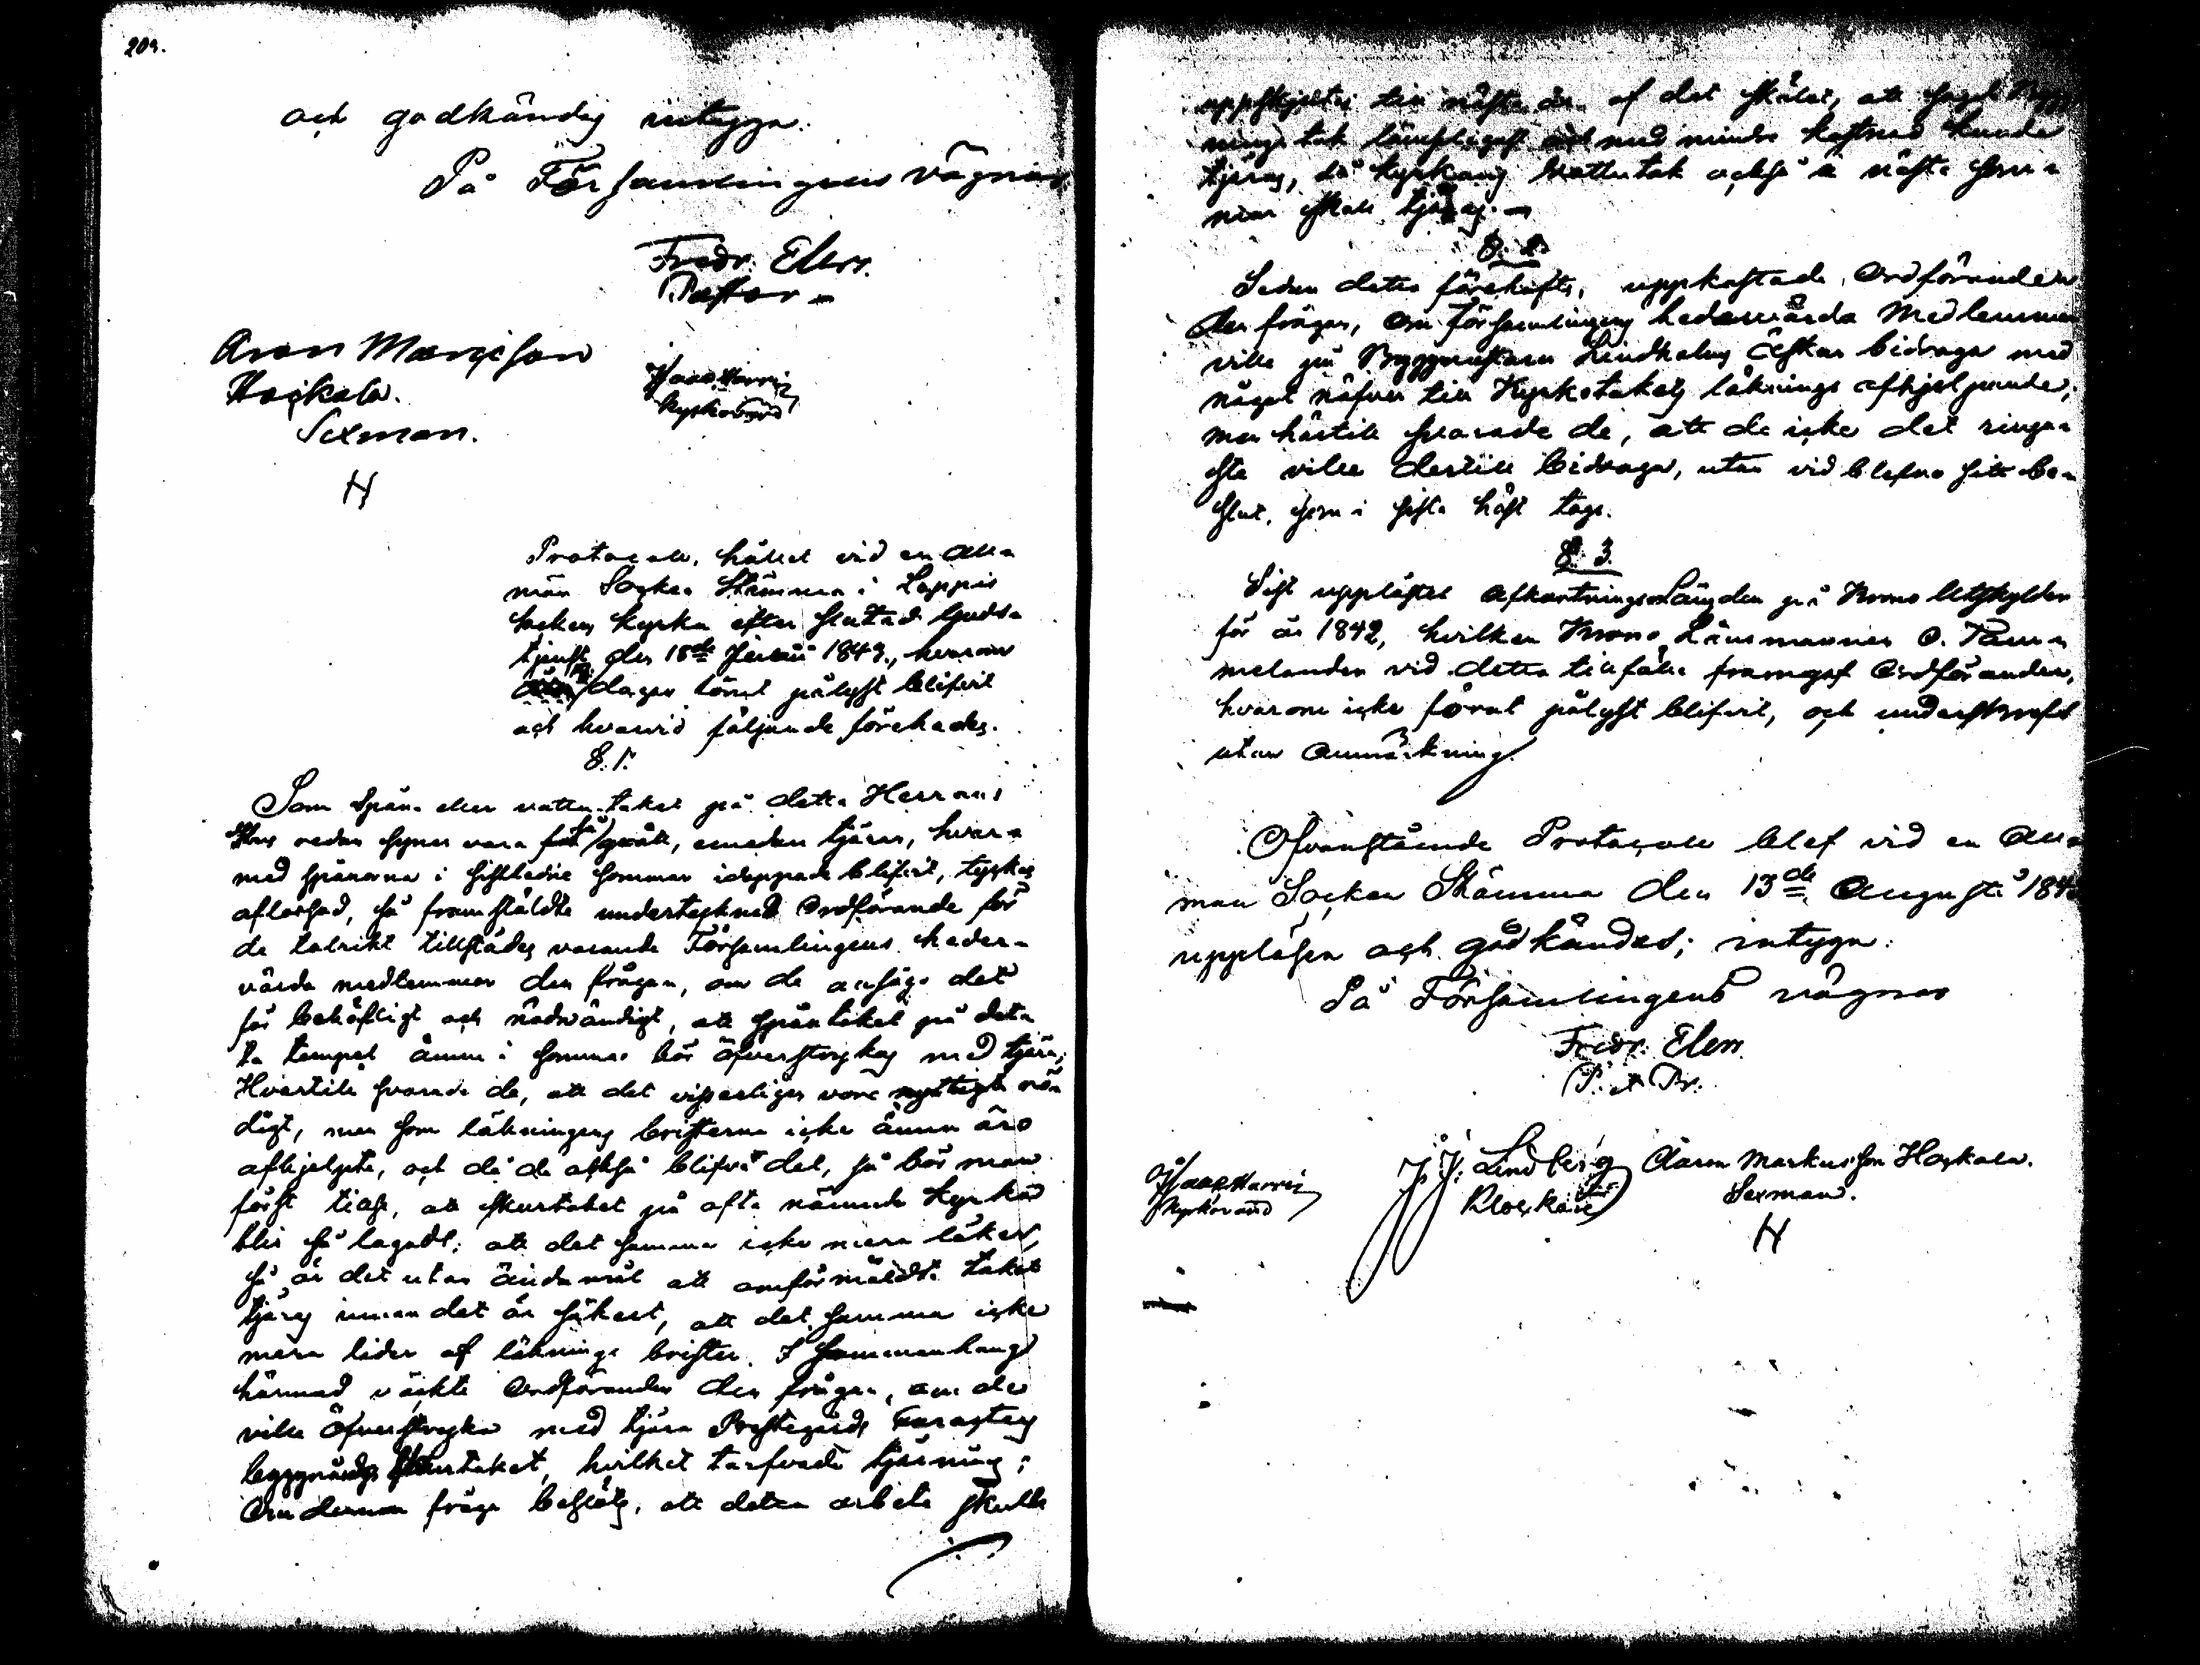 209.
och godkändes intyga:
På Församlingens vägnar
Fredr. Elers.
Pastor
Aron Marcison
Hackala.
Sexman.
Isaac Harri
Kyrkovärd
H
Protocoll, hållet vid en all-
män Socken Stämma i Lappis
sockens kyrka efter slutad Guds-
tjenst den 18de Junii 1843, hvarom
dagar förut pålyst blifvit
och hvarvid följande förehades.
§. 1.
Som spån- eller vatten-taket på detta Herrans
Hus redan synes vara grått, emedan tjäran, hvar-
med spånorna i sistledne sommar doppade blifvit, tyckes
aflossad, så framstäldte undertecknad Ordförande för
de talrikt tillstädes varande Församlingens heder-
värda medlemmar den frågan, om de ansågo det
för behöfligt och nödvändigt, att spåntaket på det-
ta tempel ännu i sommar bör öfverstrykas med tjära;
Hvartill svarade de, att det visserligen vore nyttigt nö-
digt, men som läkningens bristerna icke ännu äro
afhjelpte, och då de också blifvit det, så bör man
först tillse, att skurtaket på ofta nämnde kyrka
blir så lagadt, att det samma icke mera läker,
så är det utan ändamål att omförmäldte taket
tjäras innan det är säkert, att det samma icke
mera lider af läknings brister. I sammanhang
härmed väckte Ordföranden den frågan, om de
ville öfverstryka med tjära Prestegårds Caracters
byggnads skurtaket, hvilket tarfvade tjärning;
Om denna fråga beslöts, att detta arbete skulle
uppskjutas till nästa år af det skälet, att sagde Bygg-
nings tak lämpligast med mindre kostnad kunde
tjäras, då kyrkans vattentak också nästa som-
mar skall tjäras. –
§. 2.
Sedan detta förehafts, uppkastade Ordföranden
den frågan, om Församlingens hedervärda Medlemmar
ville på Byggmästaren Lindholms äskan bidraga med
något näfver till Kyrkotakets läknings afhjelpande;
men härtill svarade de, att de icke det ringa-
ste ville dertill bidraga, utan vid blefvo sitt be-
slut, som i sista höst togs.
§. 3.
Sist upplästes Afkortnings Längden på Krono Utskylder
för år 1842, hvilken Krono Länsmannen O. Tam-
melander vid detta tillfälle framgaf Ordföranden,
hvarom icke förut pålyst blifvit, och underskrefs
utan anmärkning.
Ofvanstående Protocoll blef vid en All-
män Socken Stämma den 13de Augusti 184
uppläsen och godkändes; intyga:
På Församlingens vägnar
Fredr. Elers.
P. & Pr.
Isaac Harri
Kyrkovärd
J. J. Lindberg
Klockare
Aaron Markusson Hackala.
Sexman.
H